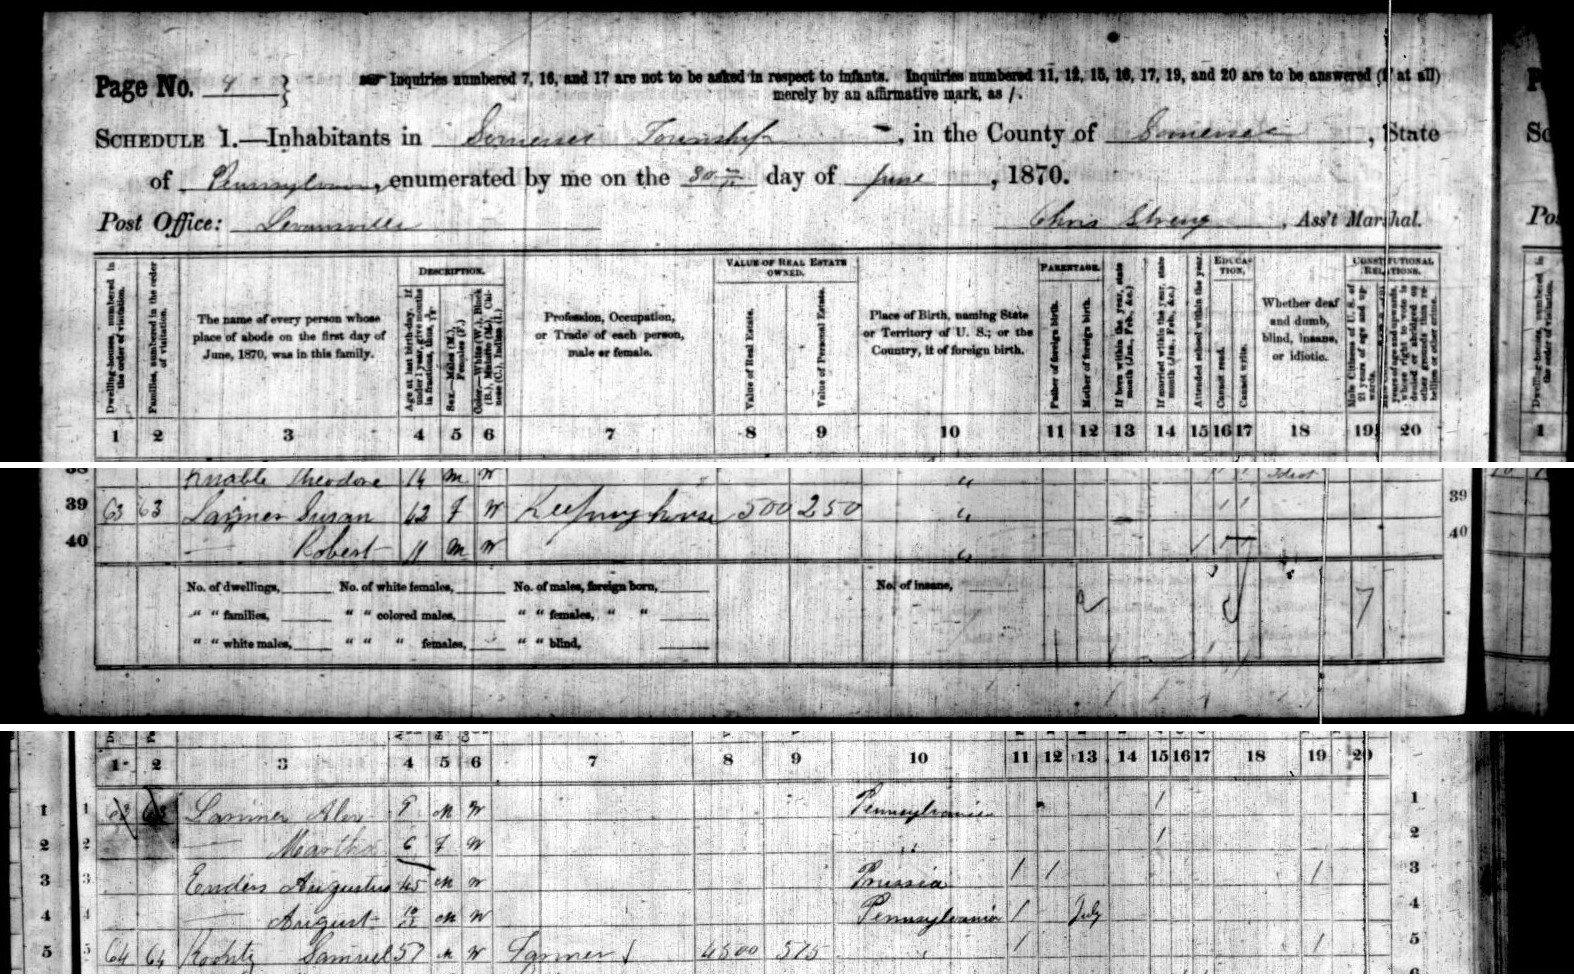 Page No. 9 } Inquiries numbered 7, 16, and 17 are not to be asked in respect to infants. Inquiries numbered 11, 12, 15, 16, 17, 19, and 20 are to be answered (if at all)
merely by an affirmative mark, as /.
SCHEDULE 1.—Inhabitants in Somerset Township, in the County of Somerset, State
of Pennsylvania, enumerated by me on the 30th day of June, 1870.
Post Office: Lavansville Chris Streng, Ass't Marshal.
DESCRIPTION. VALUE OF REAL ESTATE OWNED. PARENTAGE. EDUCATION. CONSTITUTIONAL RELATIONS.
Dwelling-houses, numbered in the order of visitation.
Families, numbered in the order of visitation.
The name of every person whose place of abode on the first day of June, 1870, was in this family.
Age at last birth-day. If under 1 year, give months in fractions, thus, 3/12
Sex.—Males (M.), Females (F.)
Color.—White (W.), Black (B.), Mulatto (M.), Chinese (C.), Indian (I.)
Profession, Occupation, or Trade of each person, male or female.
Value of Real Estate.
Value of Personal Estate.
Place of Birth, naming State or Territory of U. S.; or the Country, if of foreign birth.
Father of foreign birth.
Mother of foreign birth.
If born within the year, state month (Jan., Feb., &c.)
If married within the year, state month (Jan., Feb., &c.)
Attended school within the year.
Cannot read.
Cannot write.
Whether deaf and dumb, blind, insane, or idiotic.
Male Citizens of U. S. of 21 years of age and upwards.
1 2 3 4 5 6 7 8 9 10 11 12 13 14 15 16 17 18 19 20
Knable Theodore 14 M W "
39 63 63 Larimer Susan 42 F W Keeping house 500 250 " / / 39
40 — Robert 11 M W " / 40
No. of dwellings, No. of white females, No. of males, foreign born, No. of insane,
" " families, " " colored males, " " females, " "
" " white males, " " " females, " " blind,
2 7
1 2 3 4 5 6 7 8 9 10 11 12 13 14 15 16 17 18 19 20
1 1 63 63 Larimer Alex 9 M W Pennsylvania / 1
2 2 — Martha 6 F W " / 2
3 3 Enders Augustus 45 M W Prussia / / / 3
4 4 — August 10/12 M W Pennsylvania / July 4
5 5 64 64 Samuel 57 M W Farmer 4800 575 " / / 5